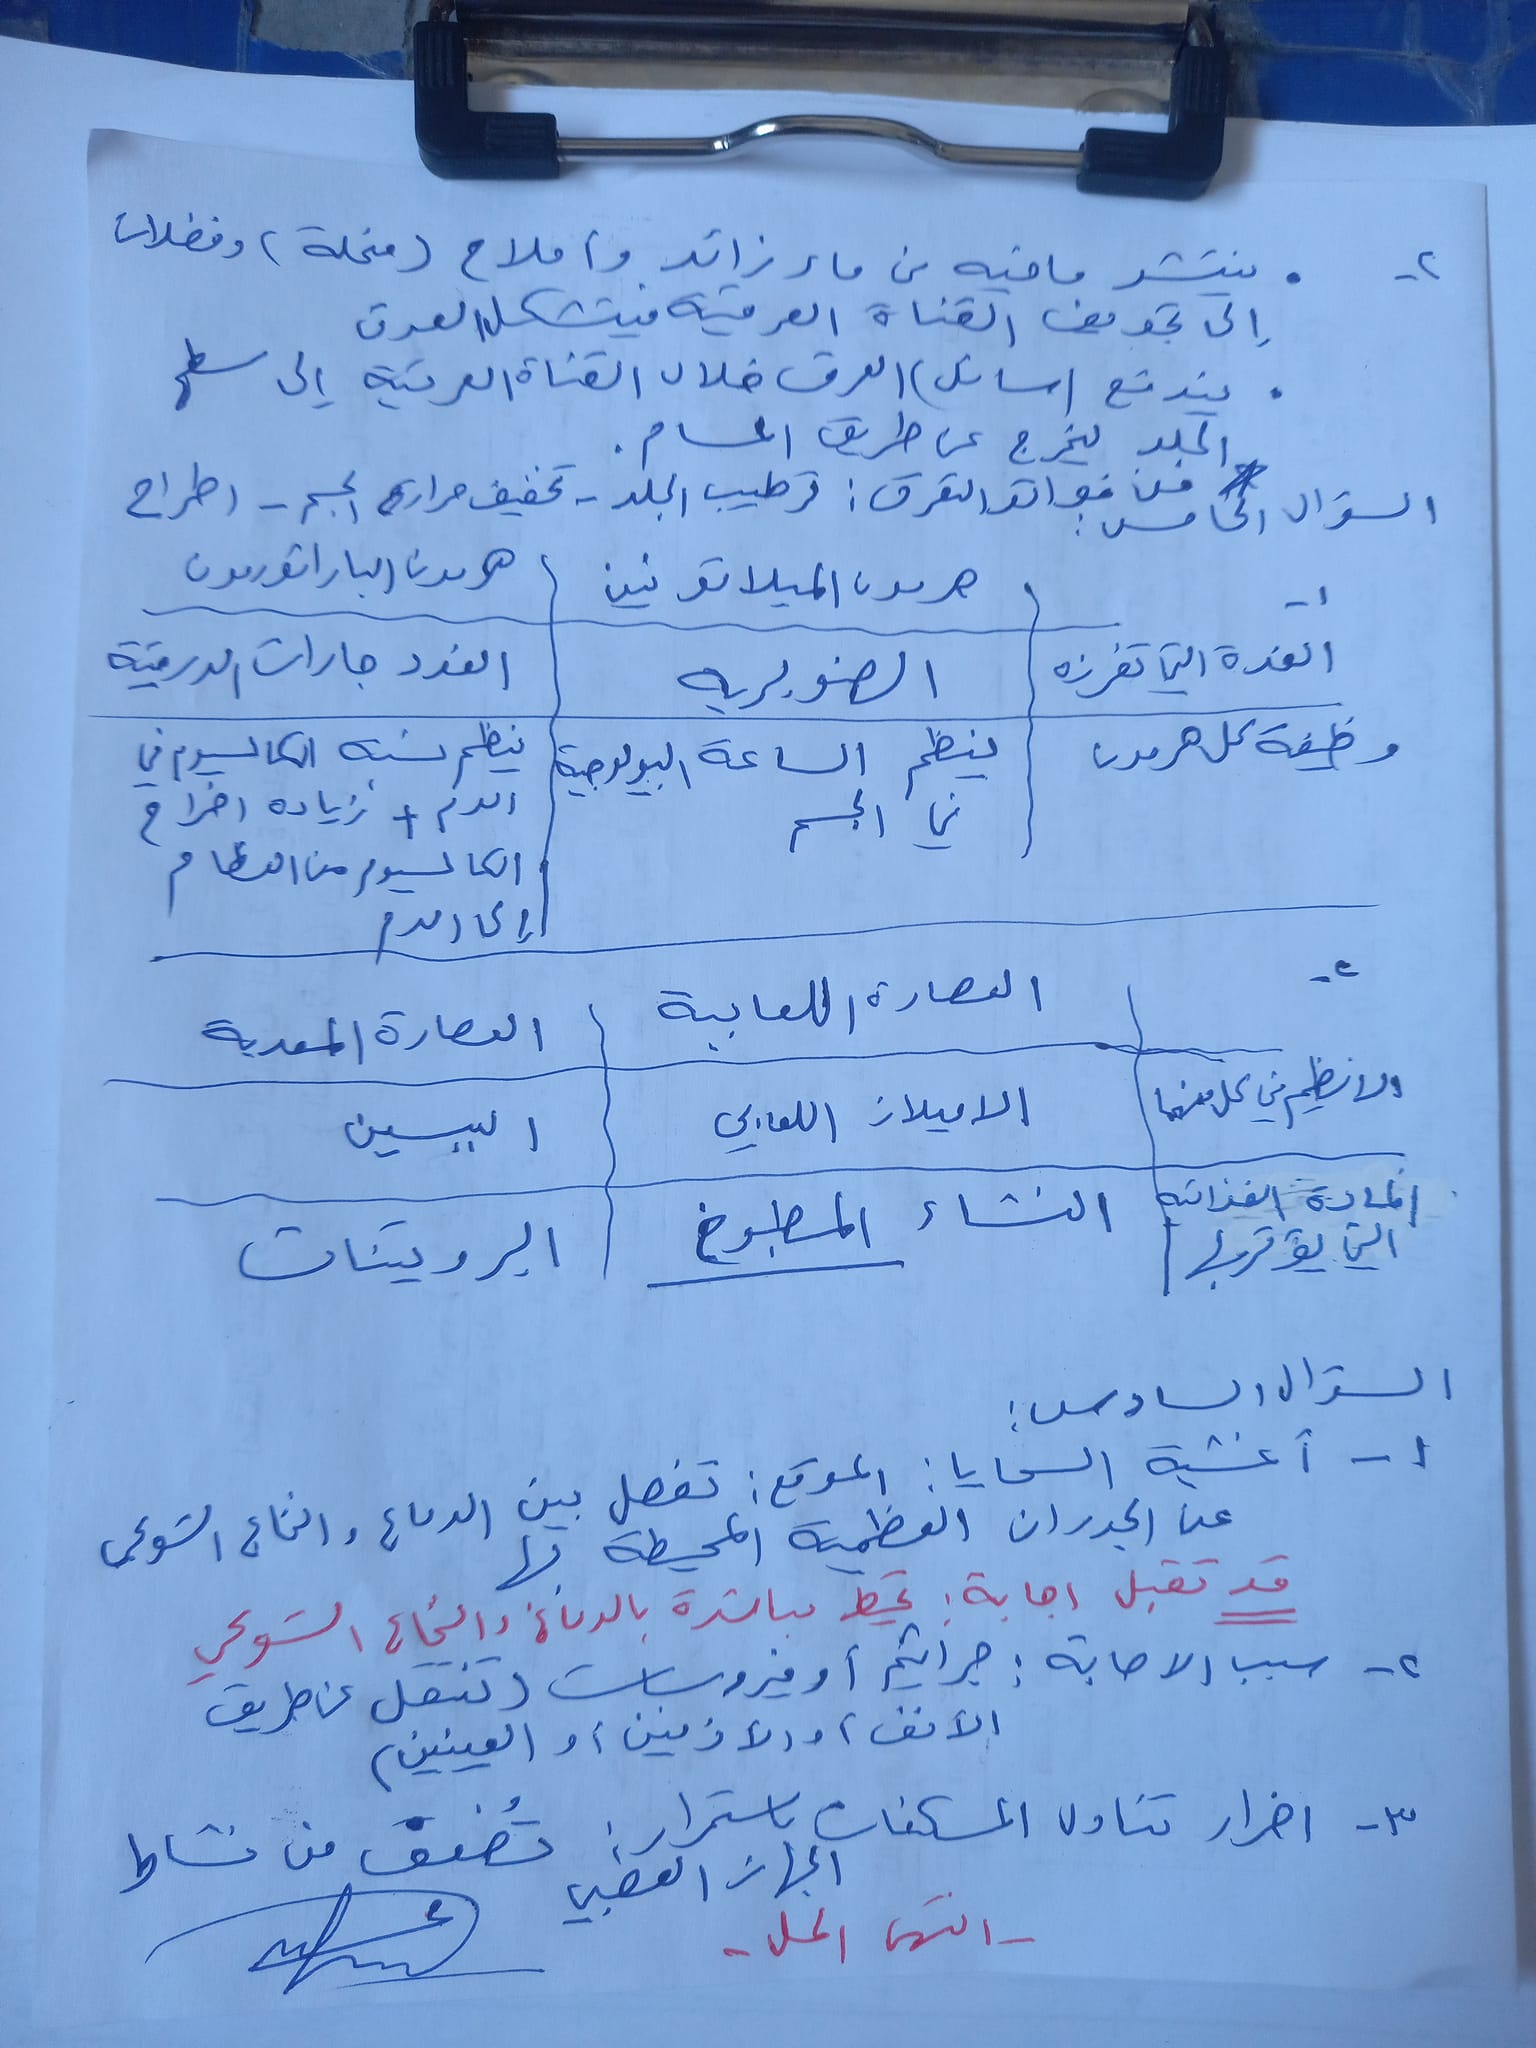 ٢- . ينتشر مافيه من ماء زائد وأملاح (منحلة) وفضلات
إلى تجويف القناة العرقية فيتشكل العرق
. يندفع (سائل) العرق خلال القناة العرقية إلى سطح
الجلد ليخرج عن طريق المسام.
من فوائد التعرق: ترطيب الجلد - تخفيف حرارة الجسم - اطراح
السؤال الخامس:
١- هرمون الميلاتونين هرمون الباراتورمون
الغدة التي تفرزه الصنوبرية الغدد جارات الدرقية
وظيفة كل هرمون ينظم الساعة البيولوجية ينظم نسبة الكالسيوم في
في الجسم الدم + زيادة اخراج
الكالسيوم من العظام
إلى الدم
٢- العصارة اللعابية العصارة المعدية
الانظيم في كل منهما الاميلاز اللعابي الببسين
المادة الغذائية النشاء المطبوخ البروتينات
التي يؤثر بها
السؤال السادس:
١- أغشية السحايا: الموقع: تفصل بين الدماغ والنخاع الشوكي
عن الجدران العظمية المحيطة بها
قد تقبل اجابة: تحيط مباشرة بالدماغ والنخاع الشوكي
٢- سبب الاصابة: جراثيم أو فيروسات (تنتقل عن طريق
الأنف أو الأذنين أو العينين)
٣- اضرار تناول المسكنات باستمرار: تُضعف من نشاط
الجهاز العصبي
- انتهى الحل -